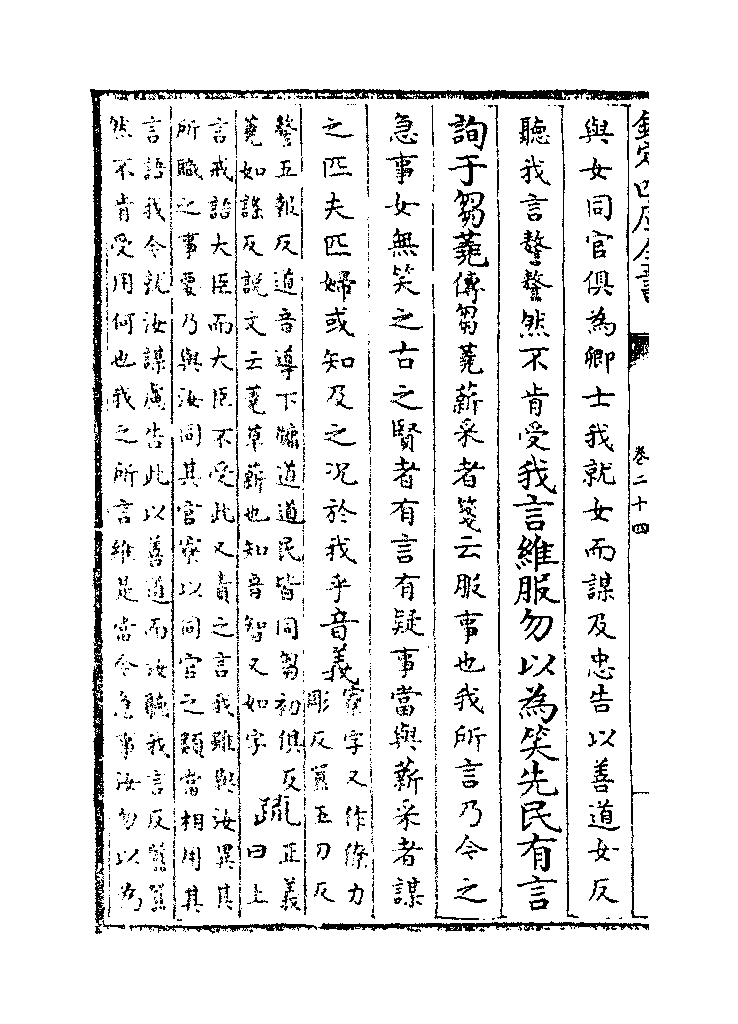 欽定四庫全書
卷二十四
與女同官俱為卿士我就女而謀及忠告以善道女反
聽我言謷謷然不肯受我言維服勿以為笑先民有言
詢于芻蕘傳芻蕘薪采者箋云服事也我所言乃今之
急事女無笑之古之賢者有言有疑事當與薪采者謀
之匹夫匹婦或知及之況於我乎音義寮字又作僚力
彫反囂五刀反
謷五報反道音導下牖道道民皆同芻初俱反
蕘如謠反說文云蕘草薪也知音智又如字
疏正義
曰上
言戒語大臣而大臣不受此又責之言我雖與汝異其
所職之事要乃與汝同其官寮以同官之類當相用其
言語我今就汝謀慮告此以善道而汝聽我言反囂囂
然不肯受用何也我之所言維是當今急事汝勿以為